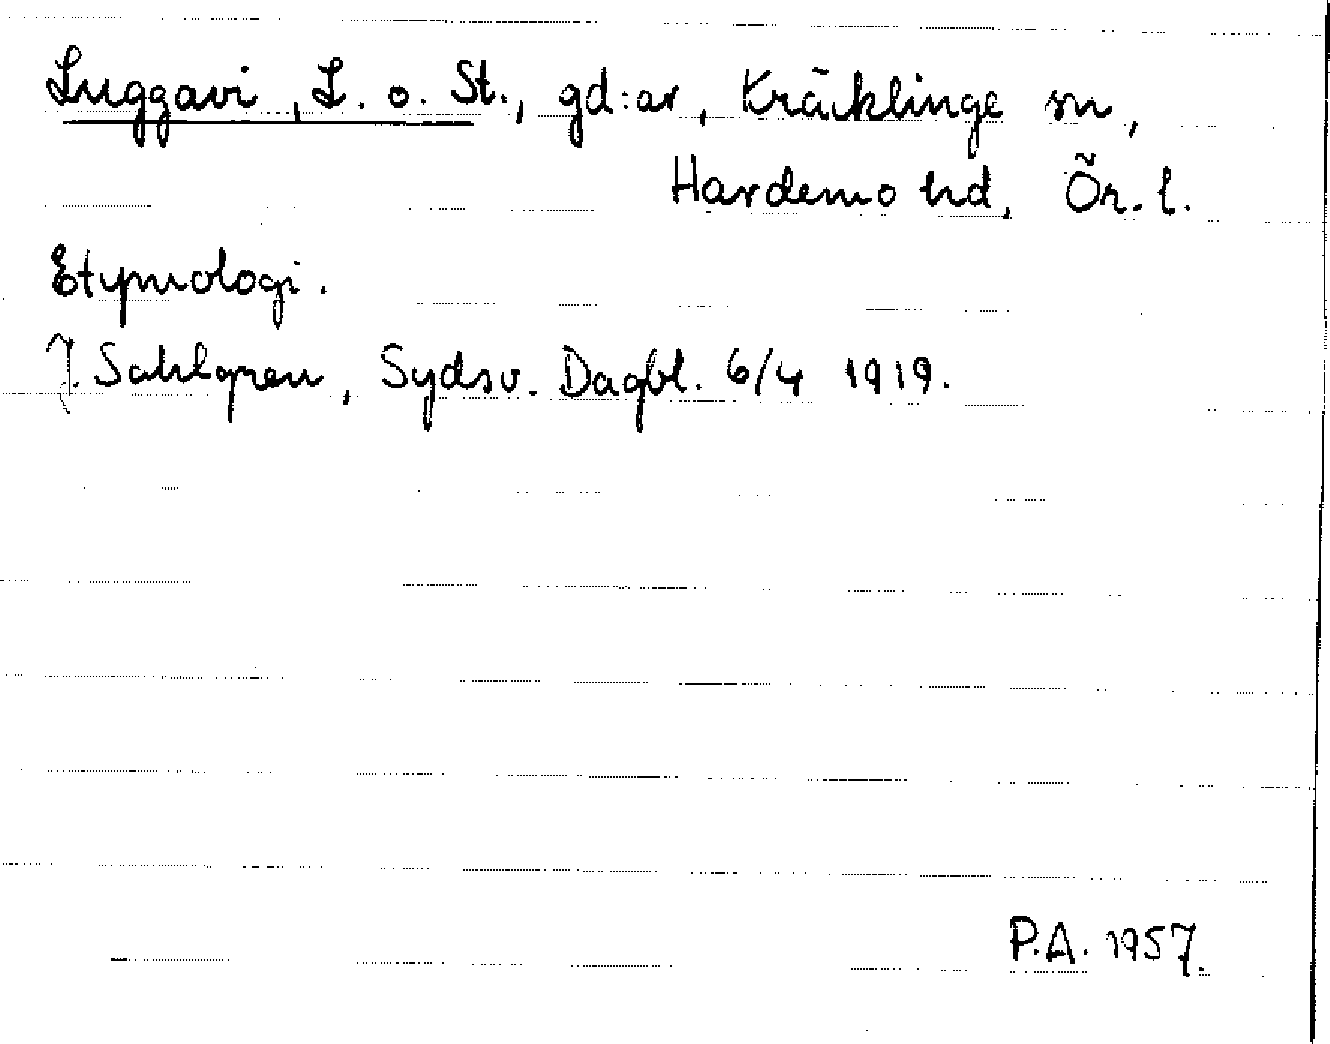 Luggavi, L. o. St., gd:ar, Kräcklinge sn,
Hardemo hd, Ör. l.
Etymologi.
J. Sahlgren, Sydsv. Dagbl. 6/4 1919.
P.A. 1957.